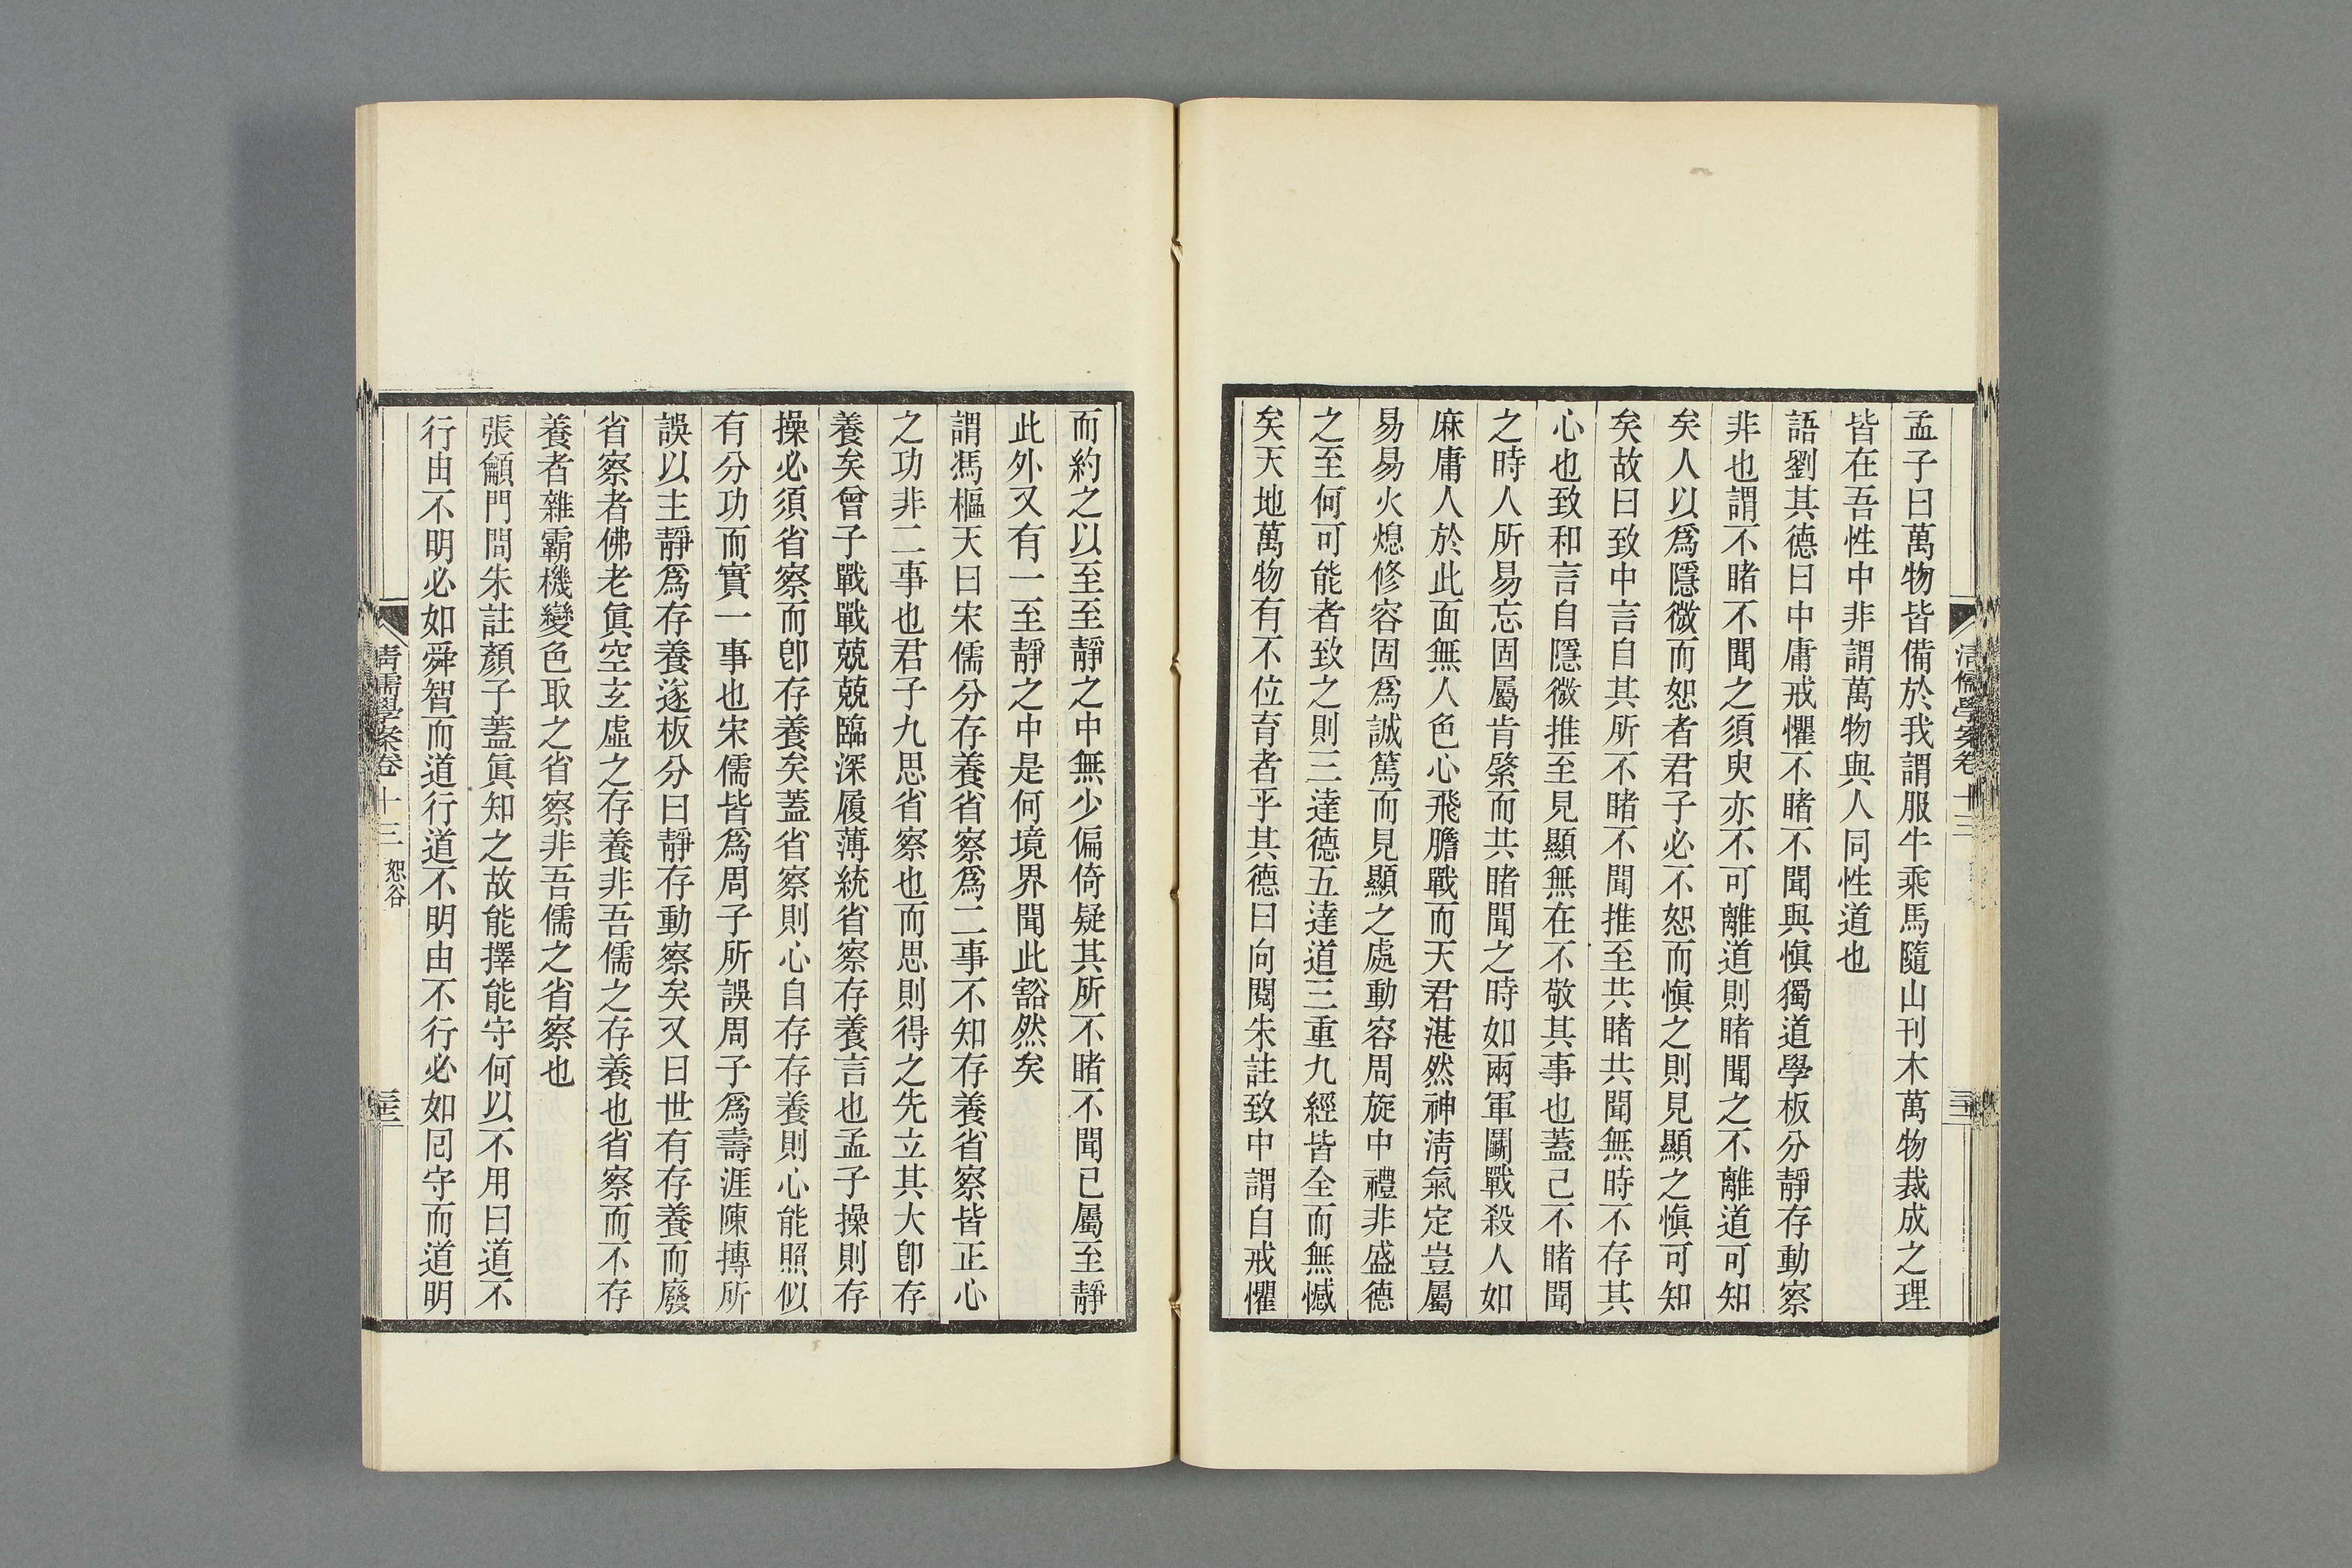 孟子曰萬物皆備於我謂服牛乘馬隨山刊木萬物裁成之理
皆在吾性中非謂萬物與人同性道也
語劉其德曰中庸戒懼不睹不聞與愼獨道學板分靜存動察
非也謂不睹不聞之須臾亦不可離道則睹聞之不離道可知
矣人以爲隱微而恕者君子必不恕而愼之則見顯之愼可知
矣故曰致中言自其所不睹不聞推至共睹共聞無時不存其
心也致和言自隱微推至見顯無在不敬其事也蓋己不睹聞
之時人所易忘固屬肯綮而共睹聞之時如兩軍鬭戰殺人如
麻庸人於此面無人色心飛膽戰而天君湛然神淸氣定豈屬
易易火熄修容固爲誠篤而見顯之處動容周旋中禮非盛德
之至何可能者致之則三達德五達道三重九經皆全而無憾
矣天地萬物有不位育者乎其德曰向閱朱註致中謂自戒懼
淸儒學案卷十三
而約之以至至靜之中無少偏倚疑其所不睹不聞已屬至靜
此外又有一至靜之中是何境界聞此豁然矣
謂馮樞天曰宋儒分存養省察爲二事不知存養省察皆正心
之功非二事也君子九思省察也而思則得之先立其大卽存
養矣曾子戰戰兢兢臨深履薄統省察存養言也孟子操則存
操必須省察而卽存養矣蓋省察則心自存存養則心能照似
有分功而實一事也宋儒皆爲周子所誤周子爲壽涯陳摶所
誤以主靜爲存養遂板分曰靜存動察矣又曰世有存養而廢
省察者佛老眞空玄虛之存養非吾儒之存養也省察而不存
養者雜霸機變色取之省察非吾儒之省察也
張籲門問朱註顏子蓋眞知之故能擇能守何以不用曰道不
行由不明必如舜智而道行道不明由不行必如囘守而道明
淸儒學案卷十三 恕谷